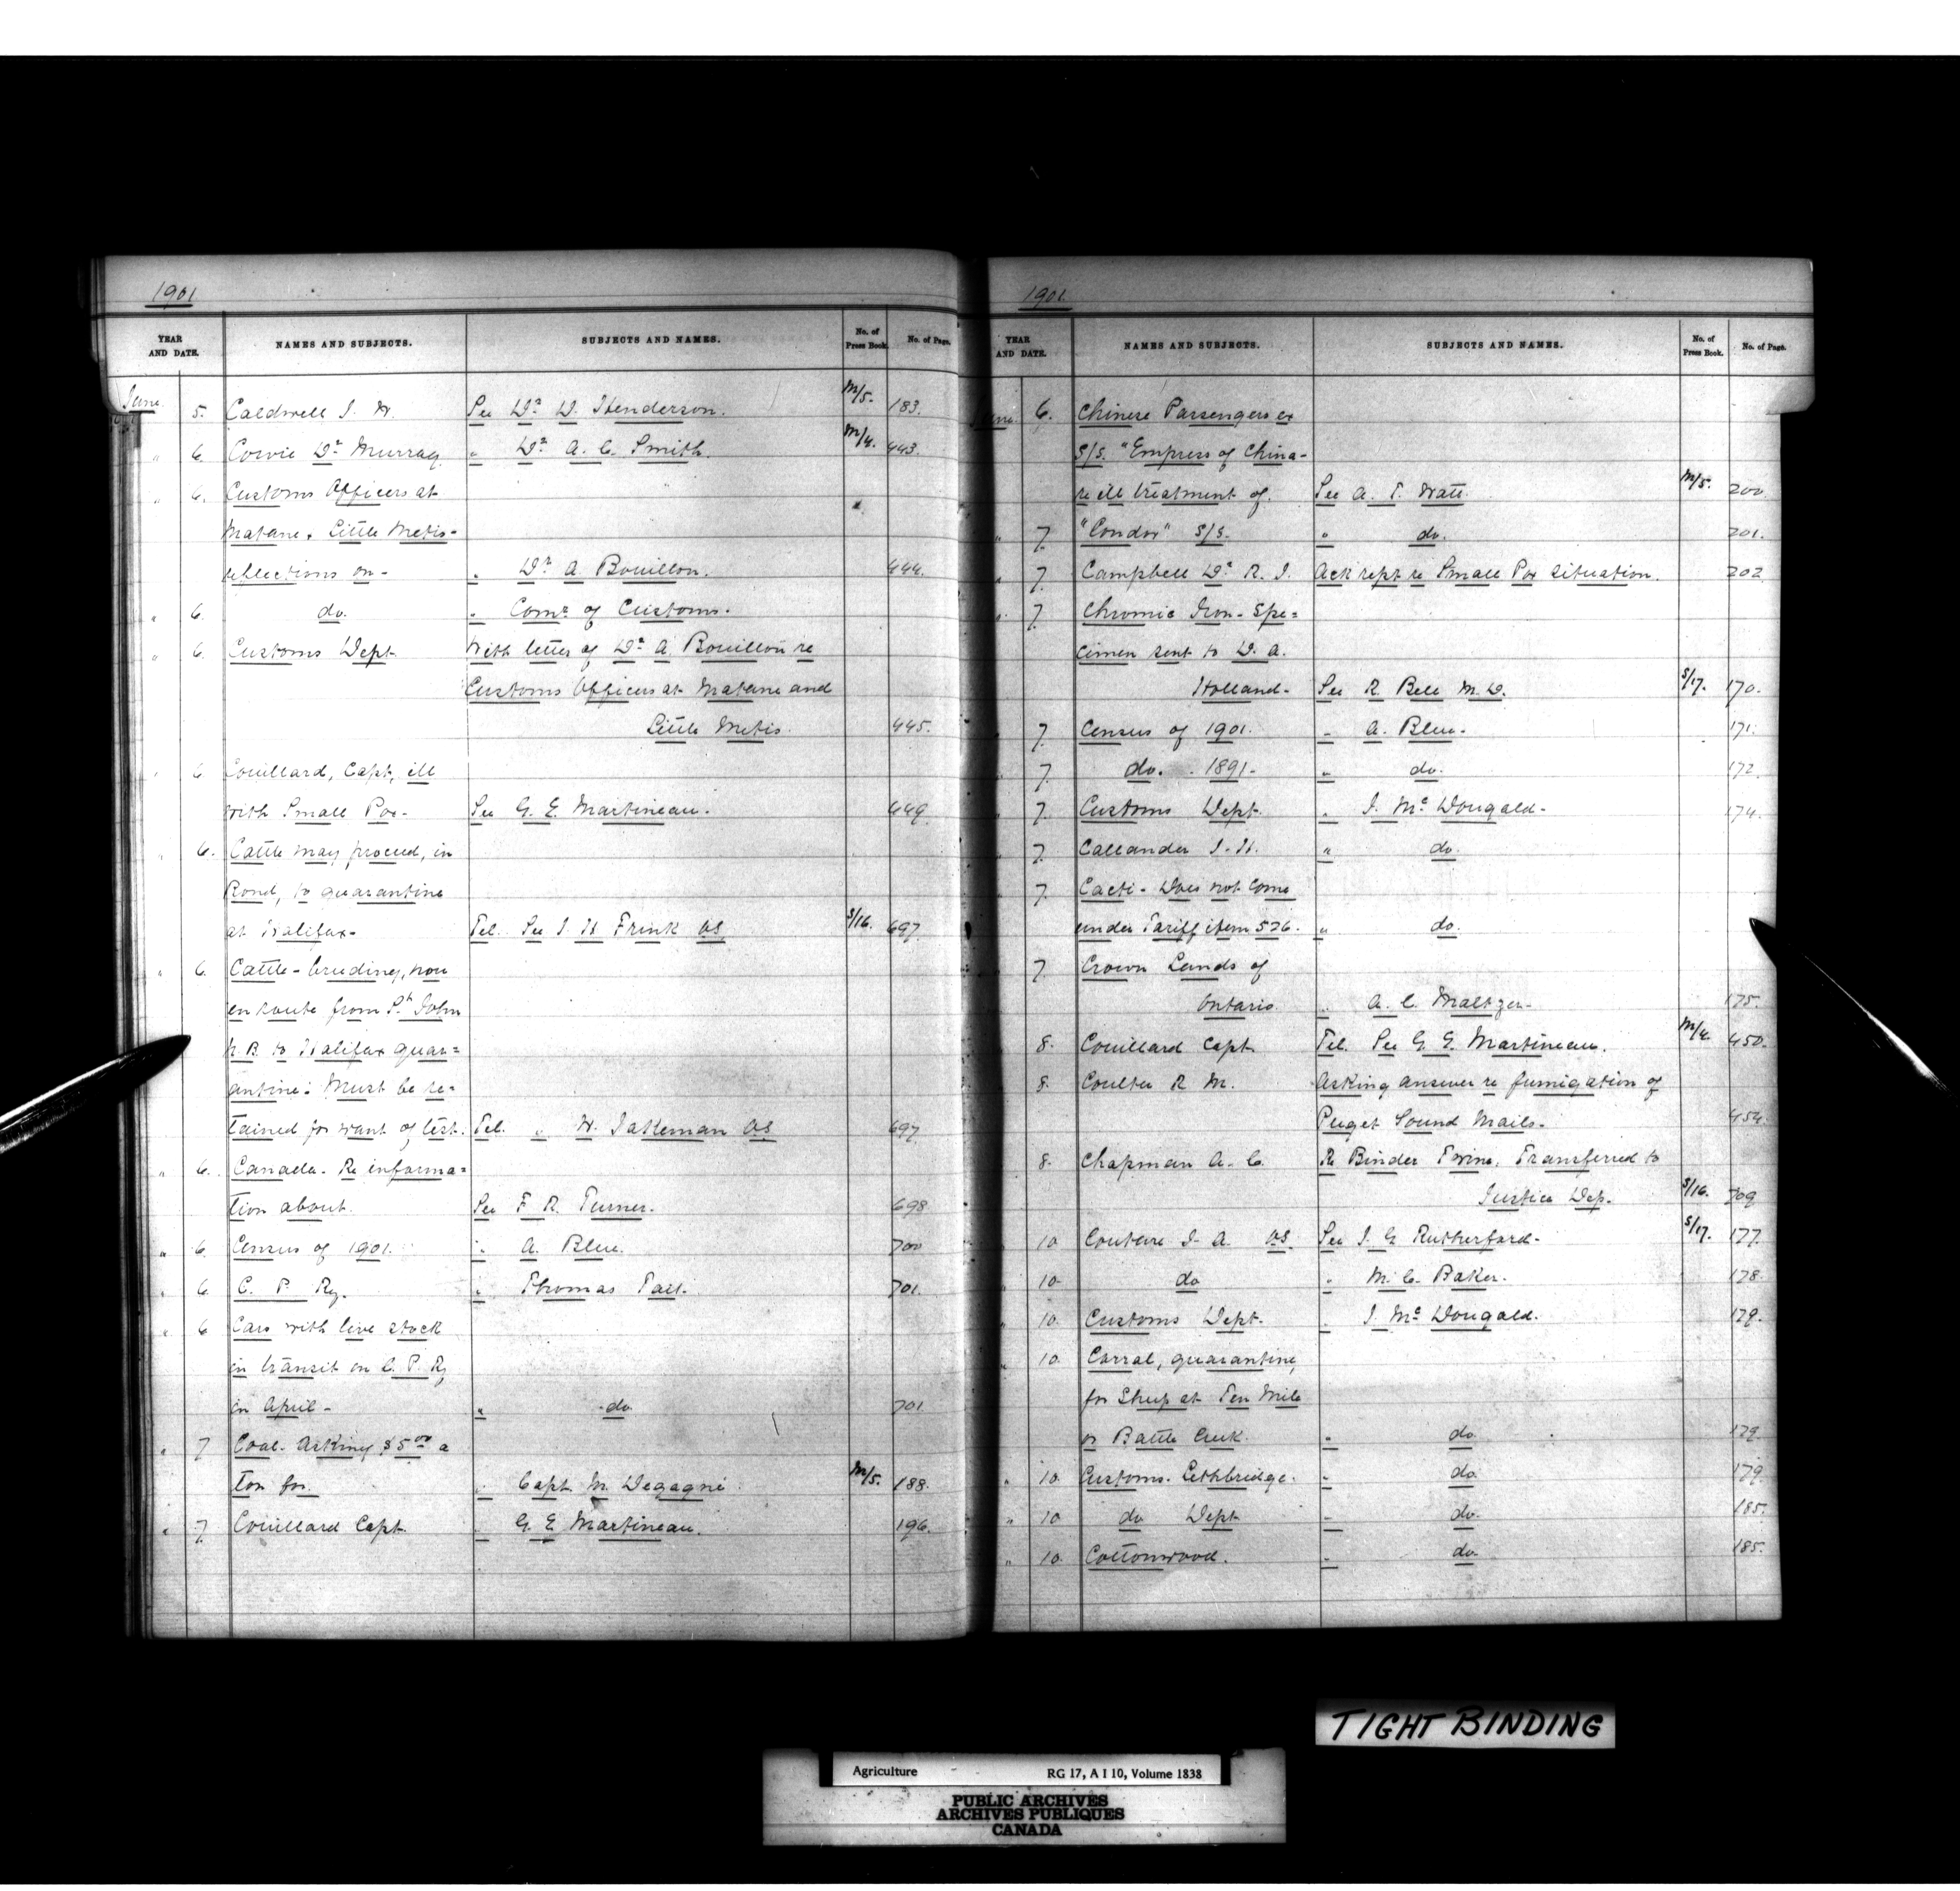 1901
YEAR AND DATE. NAMES AND SUBJECTS. SUBJECTS AND NAMES. No. of Press Book. No. of Page.
June 5. Caldwell J. W. See Dr D. Henderson. M/5. 183.
" 6. Cowie Dr Murray " Dr A. C. Smith. M/4. 443.
" 6. Customs Officers at
Matane & Little Metis-
reflections on- " Dr A. Bouillon. 444.
" 6. do. " Comr of Customs.
" 6. Customs Dept With letter of Dr A. Bouillon re
Customs Officers at Matane and
Little Metis. 445.
" 6 Couillard, Capt, ill
with Small Pox- See G. E. Martineau. 449
" 6. Cattle may proceed, in
Bond, to quarantine
at Halifax- Tel. See J. H. Frink VS S/16. 697.
" 6. Cattle-breeding, now
en route from St John
N.B. to Halifax quar=
antine: Must be re=
tained for want of test. Tel. " W. Jakeman VS 697.
" 6. Canada. Re informa=
tion about. See F. R. Turner. 698
" 6. Census of 1901. " A. Blue. 700
" 6 C. P. Ry. " Thomas Tait. 701.
" 6 Cars with live stock
in transit on C. P. Ry
in April- " do 701
" 7 Coal. Asking $5.00 a
ton for. " Capt M. Degagné M/5. 188.
" 7. Couillard Capt. " G. E. Martineau. 196.
1901.
YEAR AND DATE. NAMES AND SUBJECTS. SUBJECTS AND NAMES. No. of Press Book. No. of Page.
June 6. Chinese Passengers ex
S/S. "Empress of China-
re ill treatment of. See A. T. Watt. M/5. 200.
" 7. "Condor" S/S. " do. 201.
" 7. Campbell Dr R. J. Ack rept re Small Pox situation. 202
" 7. Chromic Iron-Spe=
cimen sent to D. A.
Holland- See R. Bell M. D. S/17. 170.
7. Census of 1901. " A. Blue. 171.
7. do. " 1891- " do. 172.
7. Customs Dept. " J. Mc Dougald- 174.
7. Callander J. H. " do.
7. Cacti-Does not come
under Tariff item 526. " do.
7 Crown Lands of
Ontario. " A. C. Maltzen- 175.
8. Couillard Capt Tel. See G. E. Martineau. M/4. 450.
8. Coulter R. M. Asking answer re fumigation of
Puget Sound Mails- 454.
8. Chapman A. C. Re Binder Twine. Transferred to
Justice Dep. S/16. 709
" 10 Couture J. A. VS. See J. G. Rutherford- S/17. 177.
10- do " M. C. Baker. 178.
" 10. Customs Dept. " J. Mc Dougald. 179.
" 10. Corral, quarantine,
for Sheep at Ten Mile
or Battle Creek. " do 179.
" 10. Customs. Lethbridge. " do. 179.
" 10 do Dept " do. 185.
" 10. Cottonwood. " do. 185.
TIGHT BINDING
Agriculture RG 17, A I 10, Volume 1838
PUBLIC ARCHIVES
ARCHIVES PUBLIQUES
CANADA